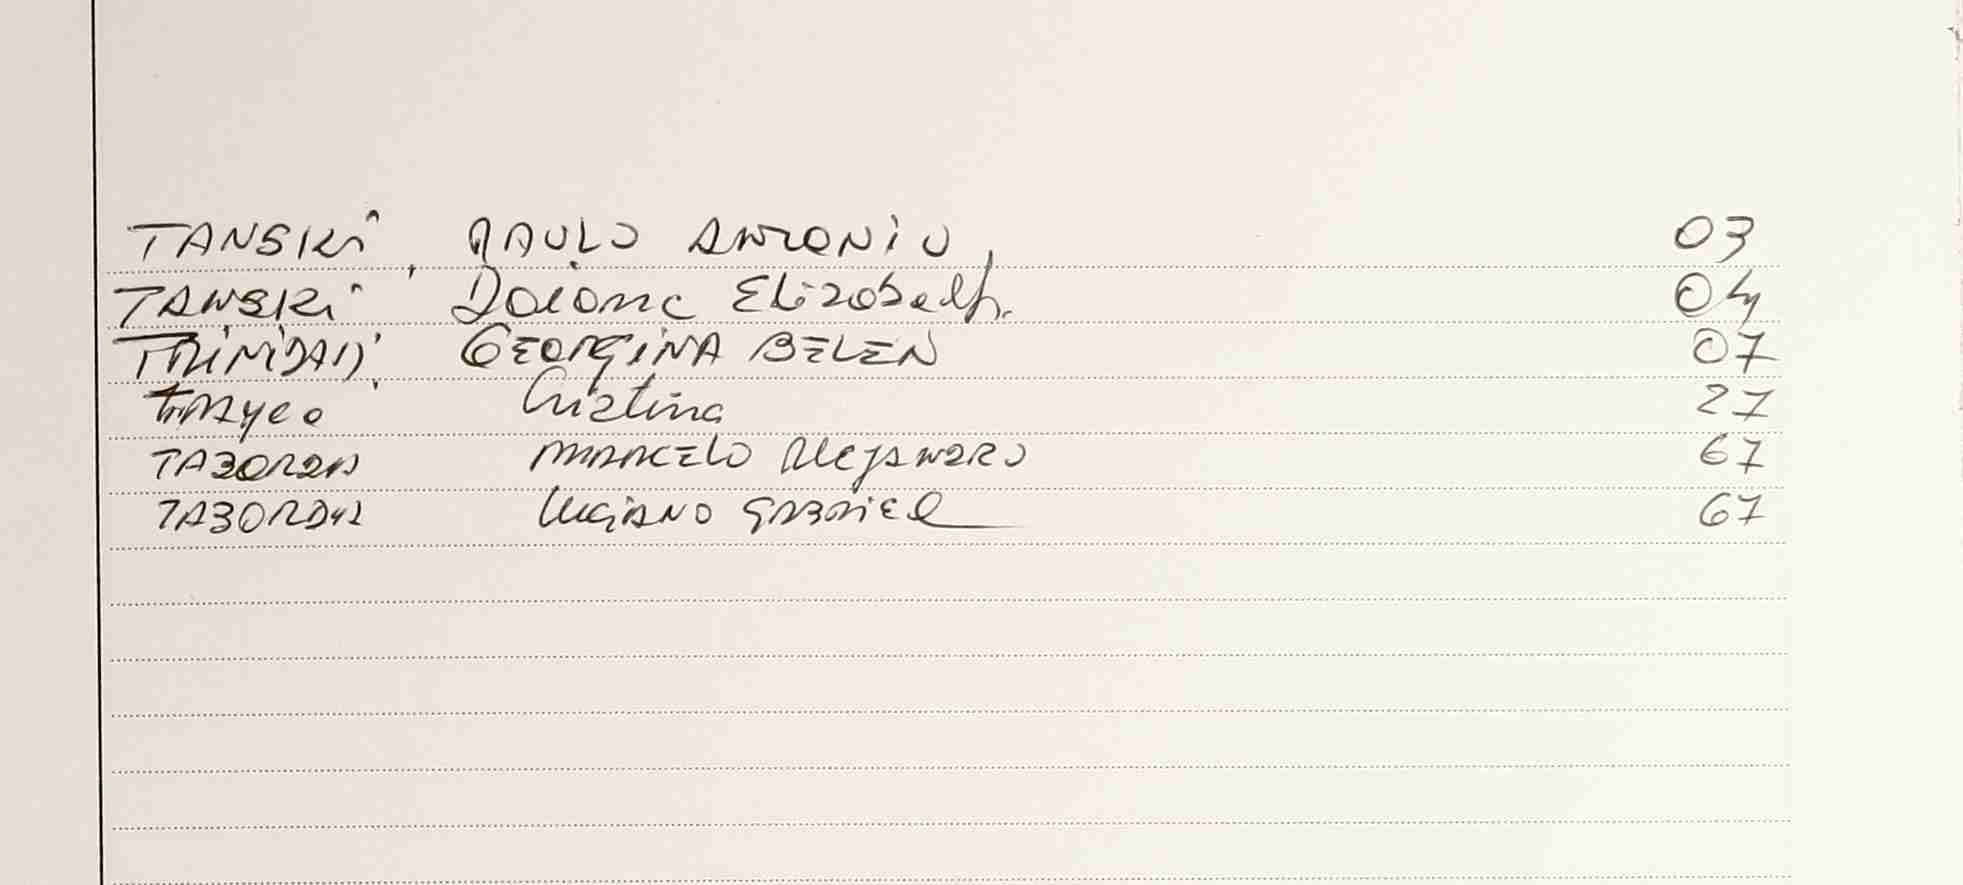 TANSKI, PAULO ANTONIO 03
TANSKI Daiana Elizabeth. 04
TRINIDAD, GEORGINA BELEN 07
Cristina 27
TABORDA MARCELO Alejandro 67
TABORDA LUCIANO GABRIEL 67